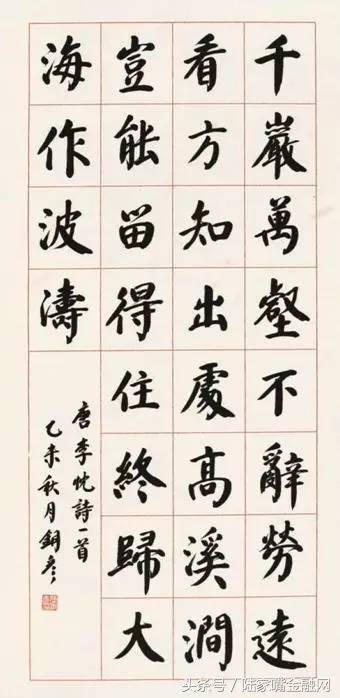 千巖萬壑不辭勞遠
看方知出處高溪澗
豈能留得住終歸大
海作波濤
唐李忱詩一首
乙未秋月銅彥
头条号/陆家嘴金融网